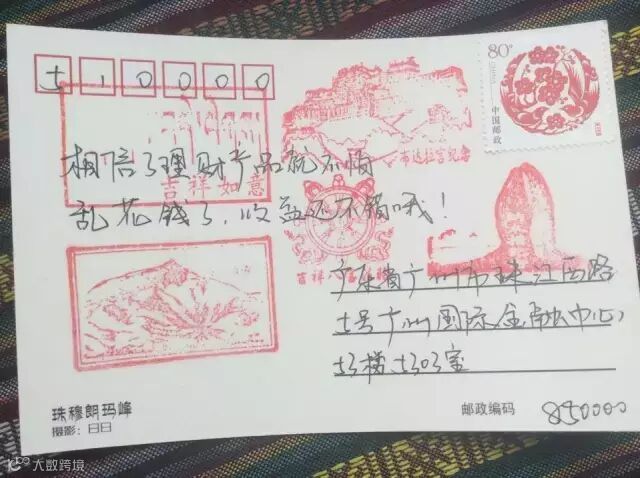 510000
80分
CHINA
中国邮政
布达拉宫纪念
相信了理财产品就不怕
吉祥如意
乱花钱了,收益还不错哦!
吉祥
广东省广州市珠江西路
5号广州国际金融中心
珠穆朗玛峰
摄影:日日
邮政编码 850000
大数跨境